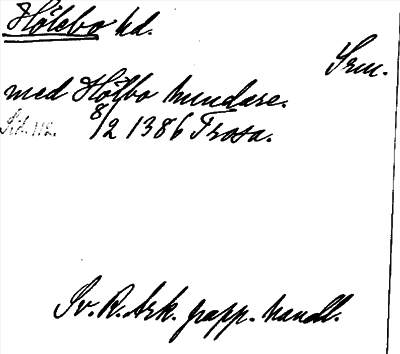 Hölebo hd.
Srm.
med Hölbo hundare.
Sid. 112. 8/2 1386 Trosa.
Sv. R. Ark. papp. handl.